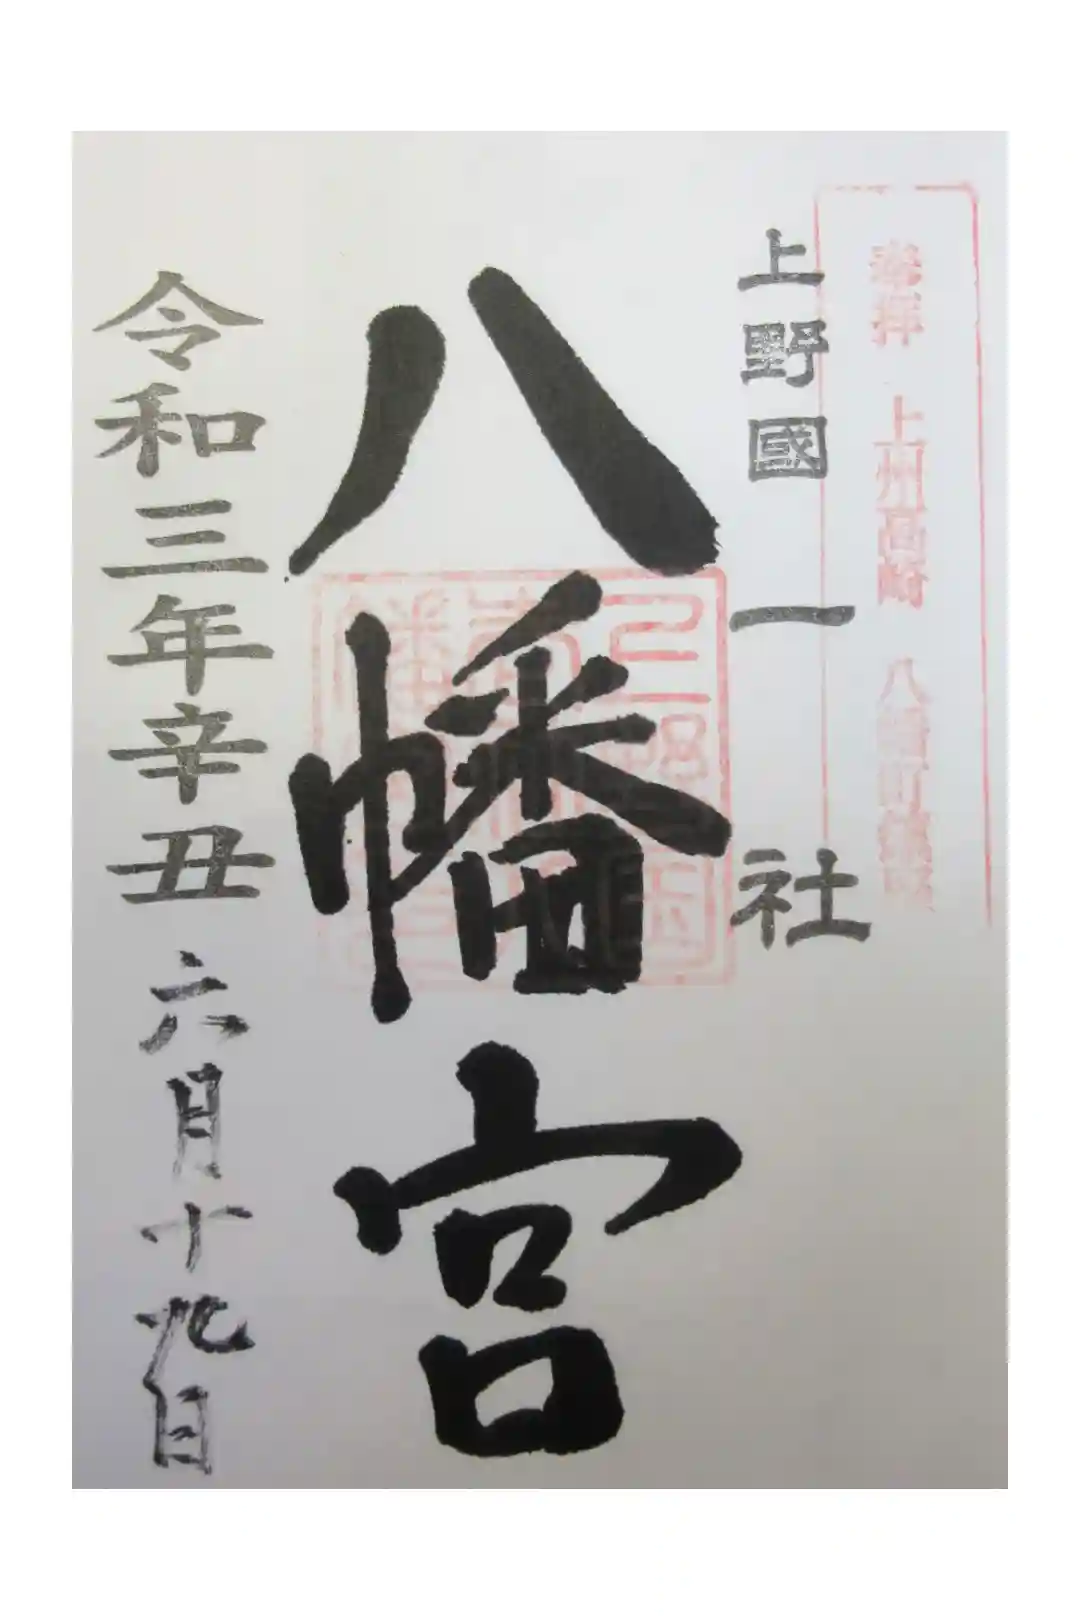 奉拝 上州高崎 八幡町鎮座
上野國一社
八幡宮
令和三年辛丑六月十九日